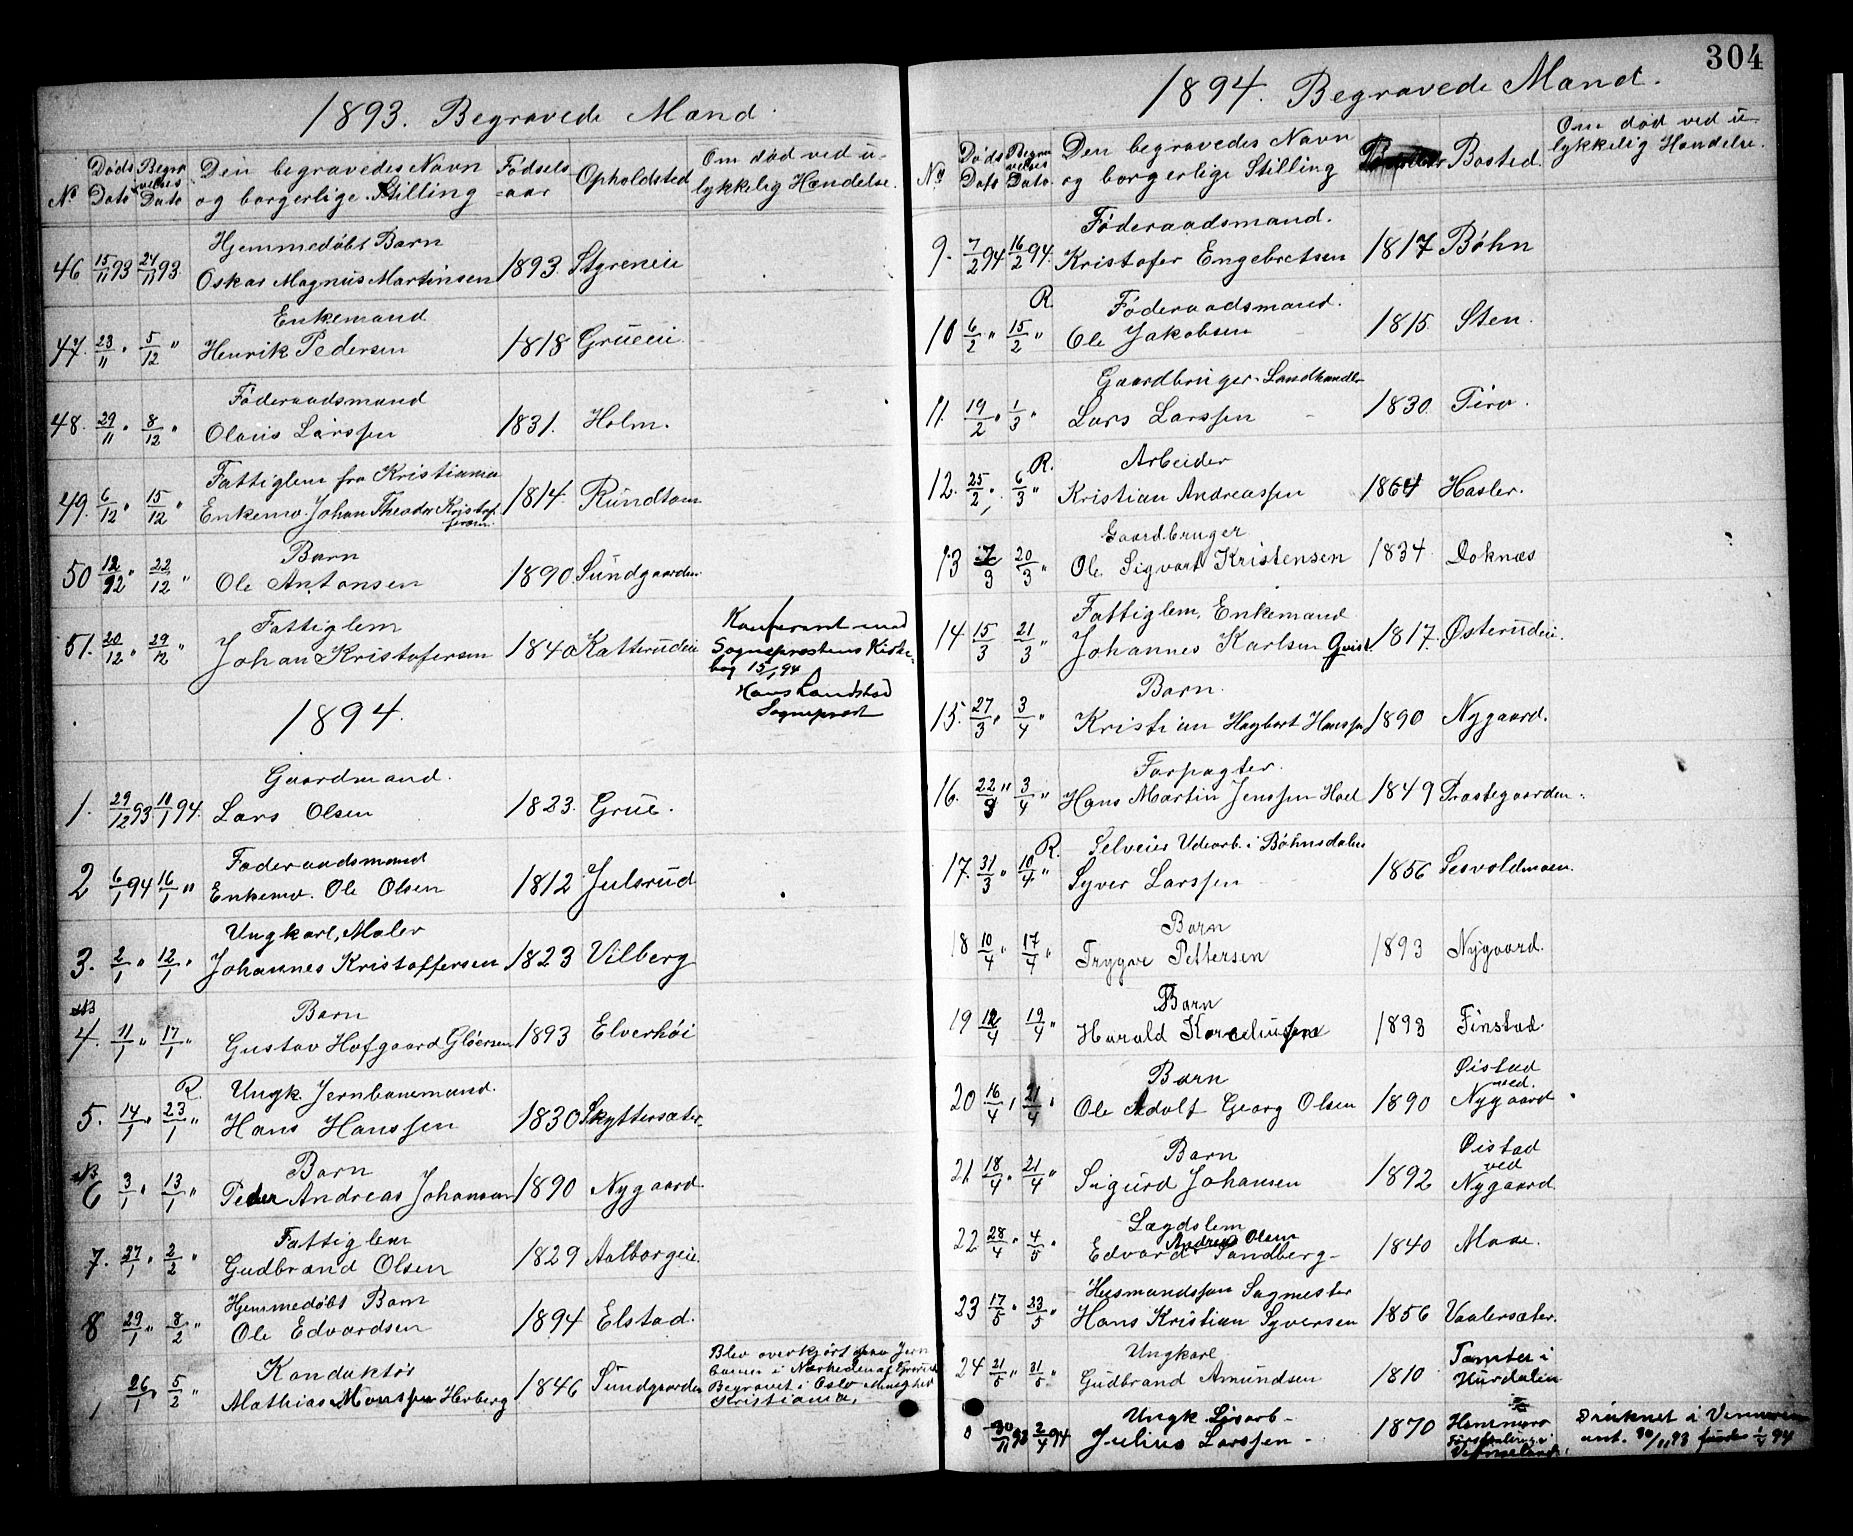 304
1893. Begravede Mænd.
No Døds Dato Begravelses Dato Den begravedes Navn og borgerlige Stilling Fødsels aar Opholdsted Om død ved ulykkelig Hændelse.
Hjemmedøbt Barn
46 15/11 93 24/11 93. Oskar Magnus Martinsen 1893 Styreneie
Enkemand
47. 23/11 " 5/12 " Henrik Pedersen 1818 Grueeie
Føderaadsmand
48. 29/11 " 8/12 " Olaus Larssen 1831. Holm.
Fattiglem fra Kristiania
49. 6/12 " 15/12 " Enkem. Johan Theodor Kristoffersen 1814. Rundtom
Barn
50 12/12 " 22/12 " Ole Antonsen 1890 Sundgaarden
Fattiglem
51. 20/12 " 29/12 " Johan Kristofersen 1840 Katterudeie
Konferert med
Sogneprestens Kirke-
bog 15/1 94
Hans Landstad
Sogneprest
1894.
Gaardmand.
1. 29/12 93 10/1 94. Lars Olsen 1823. Grue.
Føderaadsmand
2 6/1 94 16/1 " Enkem. Ole Olsen 1812 Julsrud
Ungkarl, Maler
3. 2/1 " 12/1 " Johannes Kristoffersen 1823 Vilberg
NB Barn
4. 11/1 " 17/1 " Gustav Hofgaard Gløersen 1893 Elverhøi
R. Ungk. Jernbanemand.
5. 14/1 " 23/1 " Hans Hanssen 1830 Skyttersæter
NB Barn
6 3/1 " 13/1 " Peder Andreas Johansen 1890 Nygaard
Fattiglem
7. 27/1 " 2/2 " Gudbrand Olsen 1829 Aalborgeie
Hjemmedøbt Barn
8 29/1 " 8/2 " Ole Edvardsen 1894 Elstad.
Konduktør
26/1 " 5/2 " Mathias Monssen Herberg 1846 Sundgaarden
Blev overkjørt paa Jern
banen i Nærheden af
Begravet i Oslo Menighed
Kristiania.
1894. Begravede Mænd.
No Døds Dato Begravelses Dato Den begravedes Navn og borgerlige Stilling Bosted. Om død ved ulykkelig Hændelse.
Føderaadsmand.
9. 7/2 94 16/2 94. Kristofer Engebretsen 1817 Bøhn
R. Føderaadsmand.
10 6/2 " 15/2 " Ole Jakobsen 1815. Sten.
Gaardbruger-Landhandler
11. 19/2 " 1/3 " Lars Larssen 1830. Tærø.
R. Arbeider
12. 25/2 " 6/3 " Kristian Andreassen 1864 Hasler.
Gaardbruger
13 /3 20/3 " Ole Sigvart Kristensen 1834. Doknæs
Fattiglem, Enkemand
14. 15/3 21/3 " Johannes Karlsen Qvist 1817. Østerudeie.
Barn.
15. 27/3 " 3/4 " Kristian Hagbart Hanssen 1890 Nygaard.
Forpagter.
16. 22/3 " 3/4 " Hans Martin Jenssen Hoel 1849 Præstegaarden.
R. Selveier Udearb. i Bøhnsdalen
17. 31/3 " 10/4 " Syver Larssen 1856 Sesvoldmoen.
Barn
18 10/4 " 17/4 " Trygve Pettersen 1893 Nygaard.
Barn
19 12/4 19/4 " Harald Korneliussen 1893 Finstad.
Barn
20 16/4 " 21/4 " Ole Adolf Georg Olsen 1890 Øistad ved Nygaard.
Barn
21 18/4 " 21/4 " Sigurd Johansen 1892 Øistad ved Nygaard
Lægdslem
22 28/4 " 4/5 " Edvard Andreas Olsen Sandberg 1840 Moæ.
Husmandssøn Sagmester
23 17/5 " 23/5 " Hans Kristian Syversen 1856 Vaalersæter.
Ungkarl
24 21/5 " 31/5 " Gudbrand Amundsen 1810 Tømte i Hurdalen
Ungk. Løsarb.
0 30/11 93 2/4 94 Julius Larssen 1870 Hammarø Värmland.
Druknet i Venneren
ant. 30/11 93 1/4 94